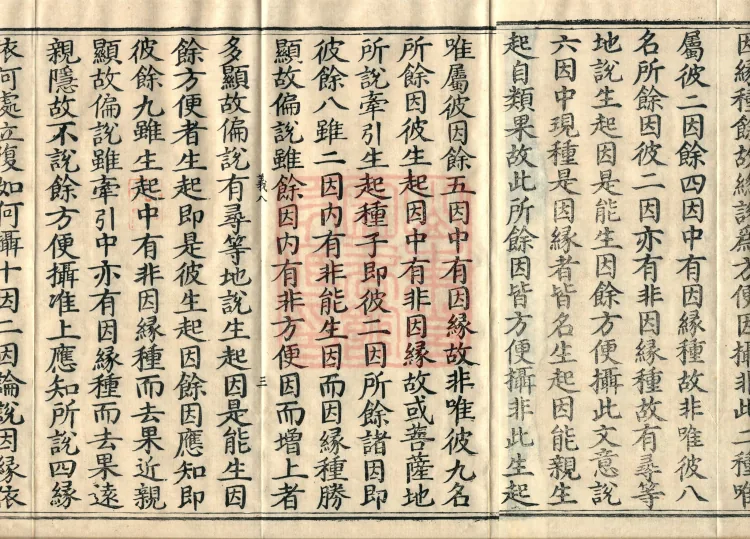 因緣種餘故總說爲方便因攝非此二種唯
屬彼二因餘四因中有因緣種故非唯彼八
名所餘因彼二因亦有非因緣種故有尋等
地說生起因是能生因餘方便攝此文意說
六因中現種是因緣者皆名生起因能親生
起自類果故此所餘因皆方便攝非此生起
唯屬彼因餘五因中有因緣故非唯彼九名
所餘因彼生起因中有非因緣故或菩薩地
所說牽引生起種子即彼二因所餘諸因即
彼餘八雖二因內有非能生因而因緣種勝
顯故偏說雖餘因內有非方便因而增上者
義八 三
多顯故偏說有尋等地說生起因是能生因
餘方便者生起即是彼生起因餘因應知即
彼餘九雖生起中有非因緣種而去果近親
顯故偏說雖牽引中亦有因緣種而去果遠
親隱故不說餘方便攝准上應知所說四緣
依何處立復如何攝十因二因論說因緣依